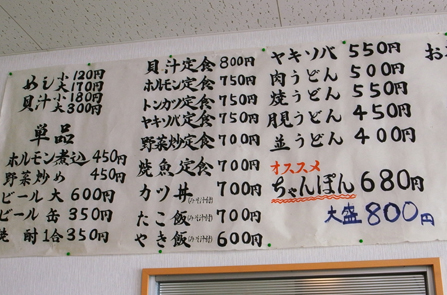 めし 小 120円
大 170円
貝汁 小 180円
大 300円
単品
ホルモン煮込 450円
野菜炒め 450円
ビール 大 600円
ビール 缶 350円
焼酎 1合 350円
貝汁定食 800円
ホルモン定食 750円
トンカツ定食 750円
ヤキソバ定食 750円
野菜炒定食 700円
焼魚定食 700円
カツ丼 700円
たこ飯 700円
やき飯 600円
ヤキソバ 550円
肉うどん 500円
焼うどん 550円
月見うどん 450円
並うどん 400円
オススメ
ちゃんぽん 680円
大盛 800円
お